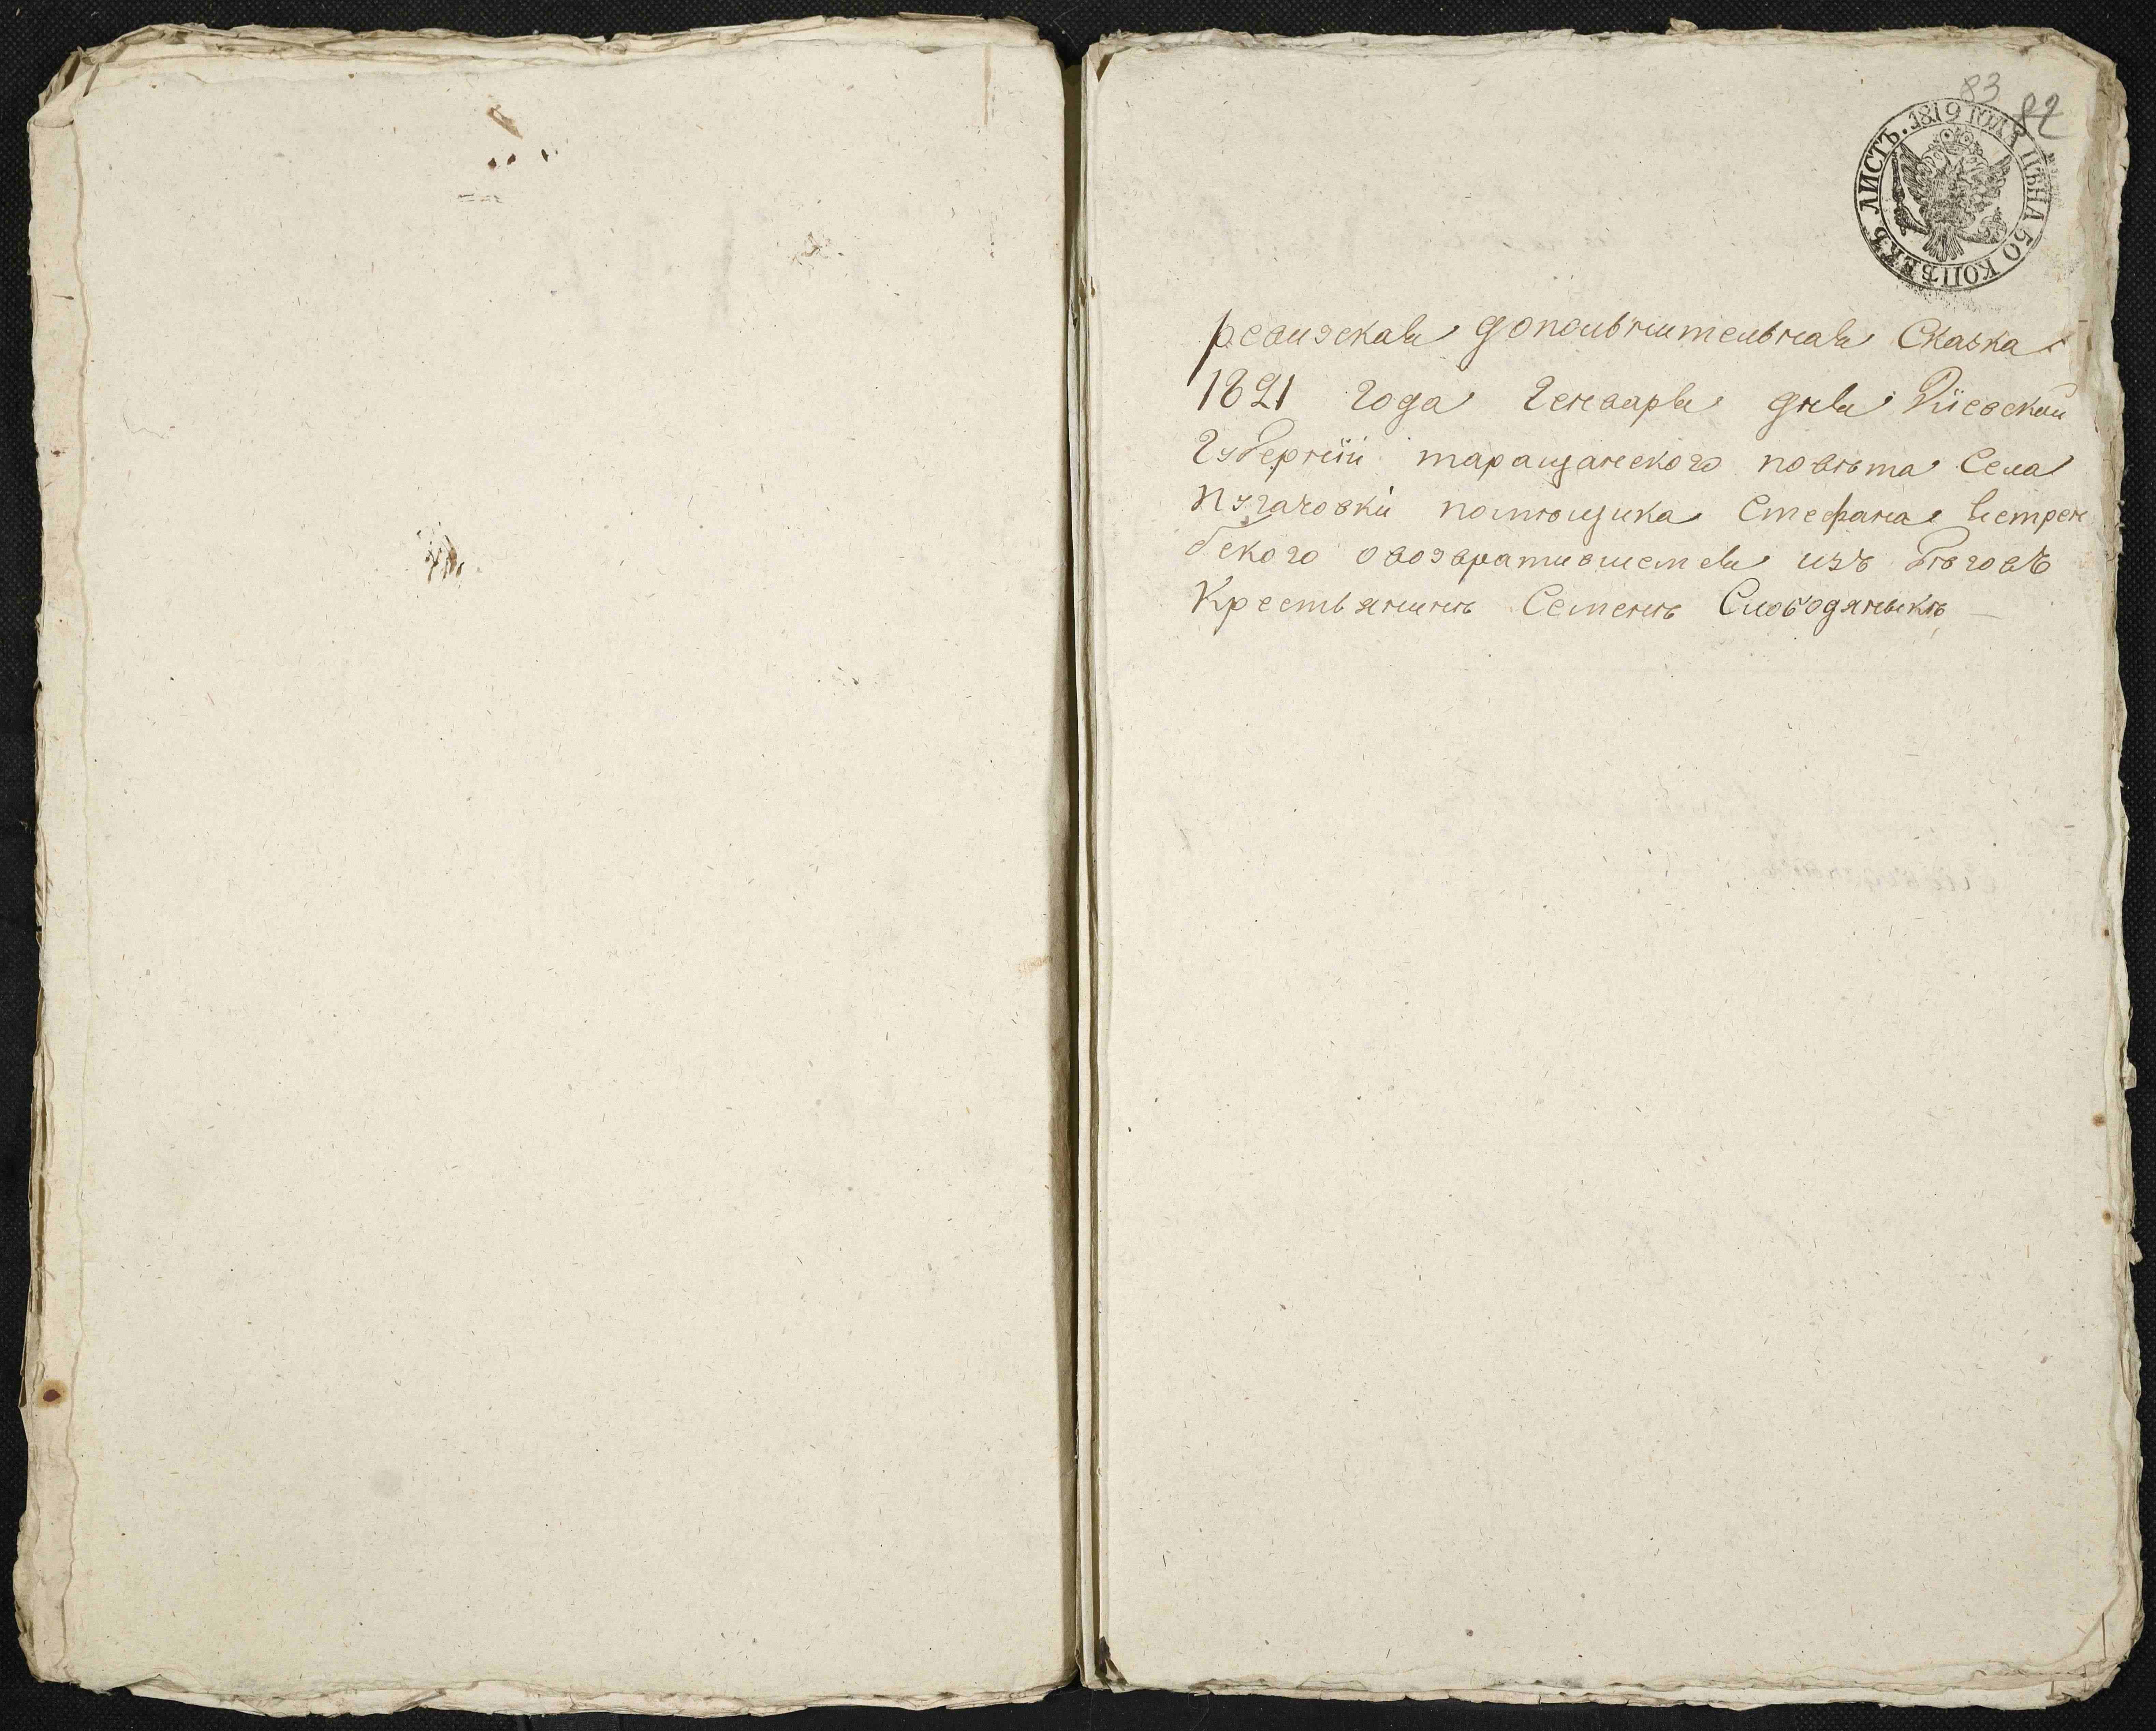 83
82
ЛИСТЪ. 1819 ГОДА ЦѢНА 50 КОПѢЕКЪ
ревизская допольнительная Сказка
1821 года Генваря дня Кіевской
Губерніи таращанского повѣта Села
Пугачовки помѣщика Стефана
ского овозвратившемся изъ Бѣговъ
Крестьянинѣ Семенѣ Слободяныкѣ